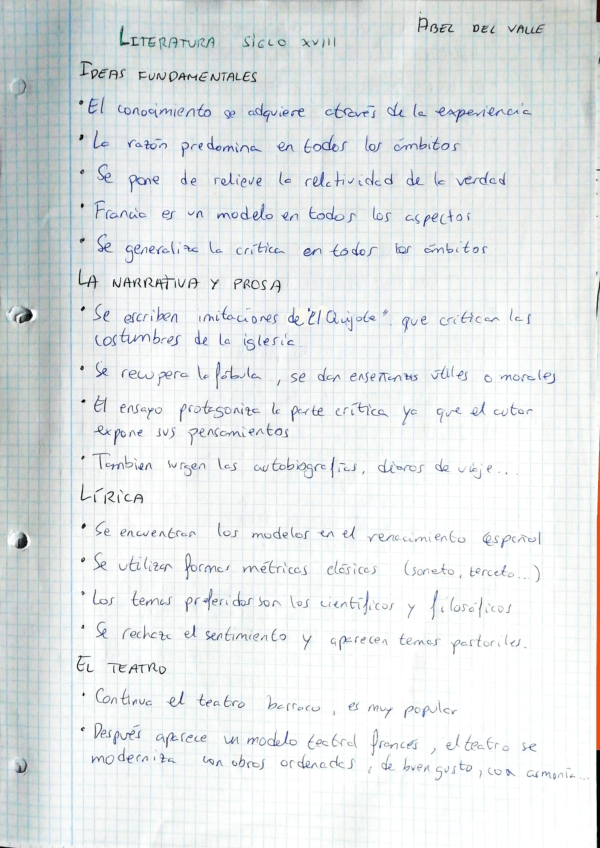 ABEL DEL VALLE
LITERATURA SIGLO XVIII
IDEAS FUNDAMENTALES
• El conocimiento se adquiere através de la experiencia
• La razón predomina en todos los ámbitos
• Se pone de relieve la relatividad de la verdad
• Francia es un modelo en todos los aspectos
• Se generaliza la crítica en todos los ámbitos
LA NARRATIVA Y PROSA
• Se escriben imitaciones de "El Quijote" que critican las
costumbres de la iglesia
• Se recupera la fábula, se dan enseñanzas útiles o morales
• El ensayo protagoniza la parte crítica ya que el autor
expone sus pensamientos
• Tambien surgen las autobiografías, diaros de viaje...
LÍRICA
• Se encuentran los modelos en el renacimiento español
• Se utilizan formas métricas clásicas (soneto, terceto...)
• Los temas preferidos son los científicos y filosóficos
• Se rechaza el sentimiento y aparecen temas pastoriles.
EL TEATRO
• Continua el teatro barroco, es muy popular
• Después aparece un modelo teatral francés, el teatro se
moderniza con obras ordenadas, de buen gusto, con armonía...